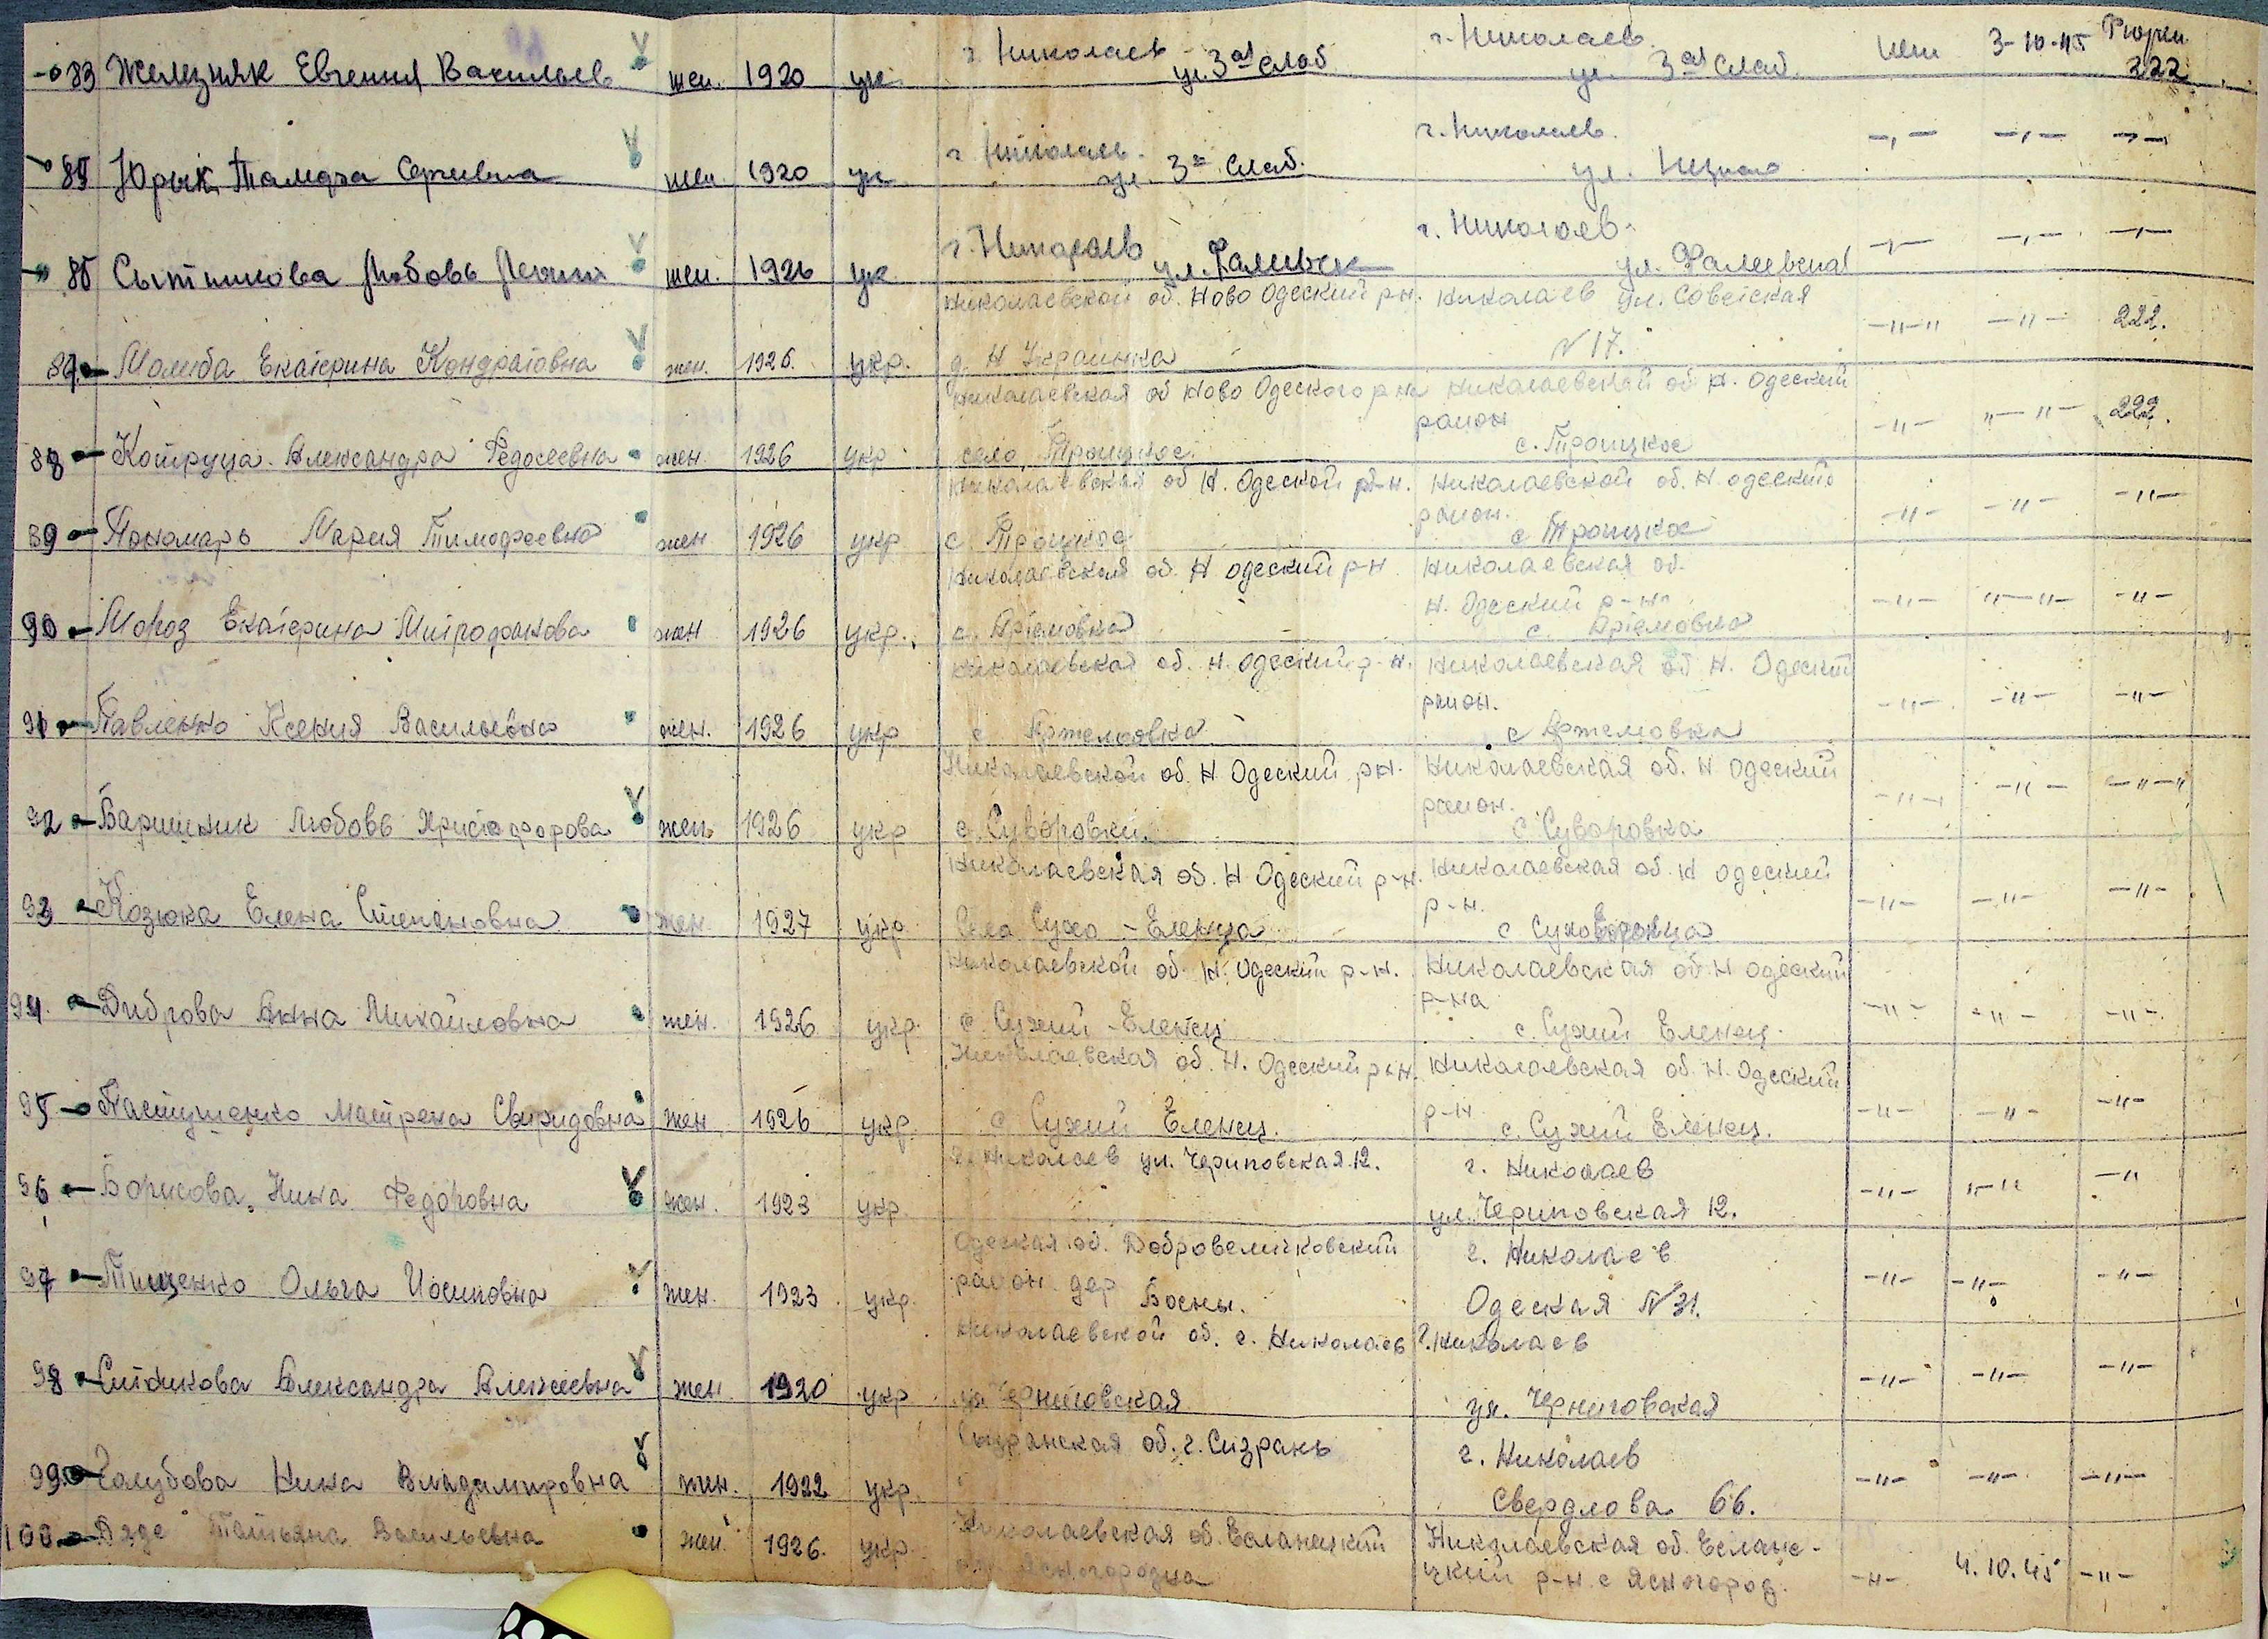 83 Железняк Евгения Васильев жен. 1920 ук г. Николаев ул. 3ая Слоб г. Николаев ул. 3ая Слоб. нет 3-10-45 222
85 Юрык Тамара Сергеевна жен 1920 ук г. Николаев. ул. 3я Слоб. г. Николаев. ул. -,- -,- -,-
85 Сытникова Любовь жен. 1926 ук г. Николаев ул. Фалиевск г. Николаев. ул. Фалеевская -,- -,- -,-
Николаевской об. Ново Одеский р-н. Николаев ул. Советская
87. Молиба Екатерина Кондратовна жен. 1926. укр. д. Н Украинка N 17. -"-" -"- 222.
Николаевская об Ново Одеского р-на Николаевской об Н. Одеский
район
88 Котруца Александра Федосеевна жен. 1926 укр село Троицкое. с. Троицкое -"- "-"- 222.
Николаевская об Н. Одеской р-н. Николаевской об. Н. одеский
район.
89 Пономарь Мария Тимофеевна жен 1926 укр с Троицкое с Троицкое -"- -"- -"-
Николаевская об. Н одеский р-н Николаевская об.
Н. Одеский р-н
90 Мороз Екатерина Митрофанова жен 1926 укр. с. Артемовка с. Артемовка -"- "-"- -"-
Николаевская об. Н. Одеский р-н. Николаевская об Н. Одеский
район.
91 Павленко Ксения Васильевна жен. 1926 укр с Артемовка с Артемовка -"- -"- -"-
Николаевской об. Н Одеский р-н. Николаевская об. Н Одеский
район.
92 Баришник Любовь Христофорова жен. 1926 укр с. Суворовки с Суворовка -"- -"- -"-"
Николаевская об. Н Одеский р-н. Николаевская об. Н одеский
р-н.
93 Козюка Елена Степановна жен. 1927 укр Село Сухо-Еленца с -"- -"- -"-
Николаевской об. Н. Одеский р-н. Николаевская об. Н одеский
р-на
94. Диброва Анна Михайловна жен. 1926 укр. с. Сухий-Еленец с. Сухий Еленец. -"- -"- -"-.
Николаевская об. Н. Одеский р-н. Николаевская об. Н. Одеский
р-н
95 Пастушенко Матрена Свиридовна жен 1926 укр. с Сухий Еленец. с. Сухий Еленец. -"- -"- -"-
г. Николаев ул. Черниговская 12. г. Николаев
96 Борисова Нина Федоровна жен. 1923 укр. ул. Черниговская 12. -"- "-" -"
Одеская об. Добровеличковский г. Николаев
район дер Босны.
97 Тищенко Ольга Иосиповна жен. 1923 укр. Одеская N 31. -"- -"- -"-
Николаевской об. г. Николаев г. Николаев
98 Ситникова Александра Алексеевна жен. 1920 укр ул Черниговская ул. Черниговская -"- -"- -"-
Сызранская об. г. Сизрань г. Николаев
99. Голубова Нина Владимировна жен. 1922 укр. Свердлова 66. -"- -"- -"-
100 Татьяна Васильевна жен. 1926. укр. Николаевская об. Еланецкий Николаевская об. Еланец-
Ясногородка цкий р-н с Ясногород. -"- 4.10.45 -"-